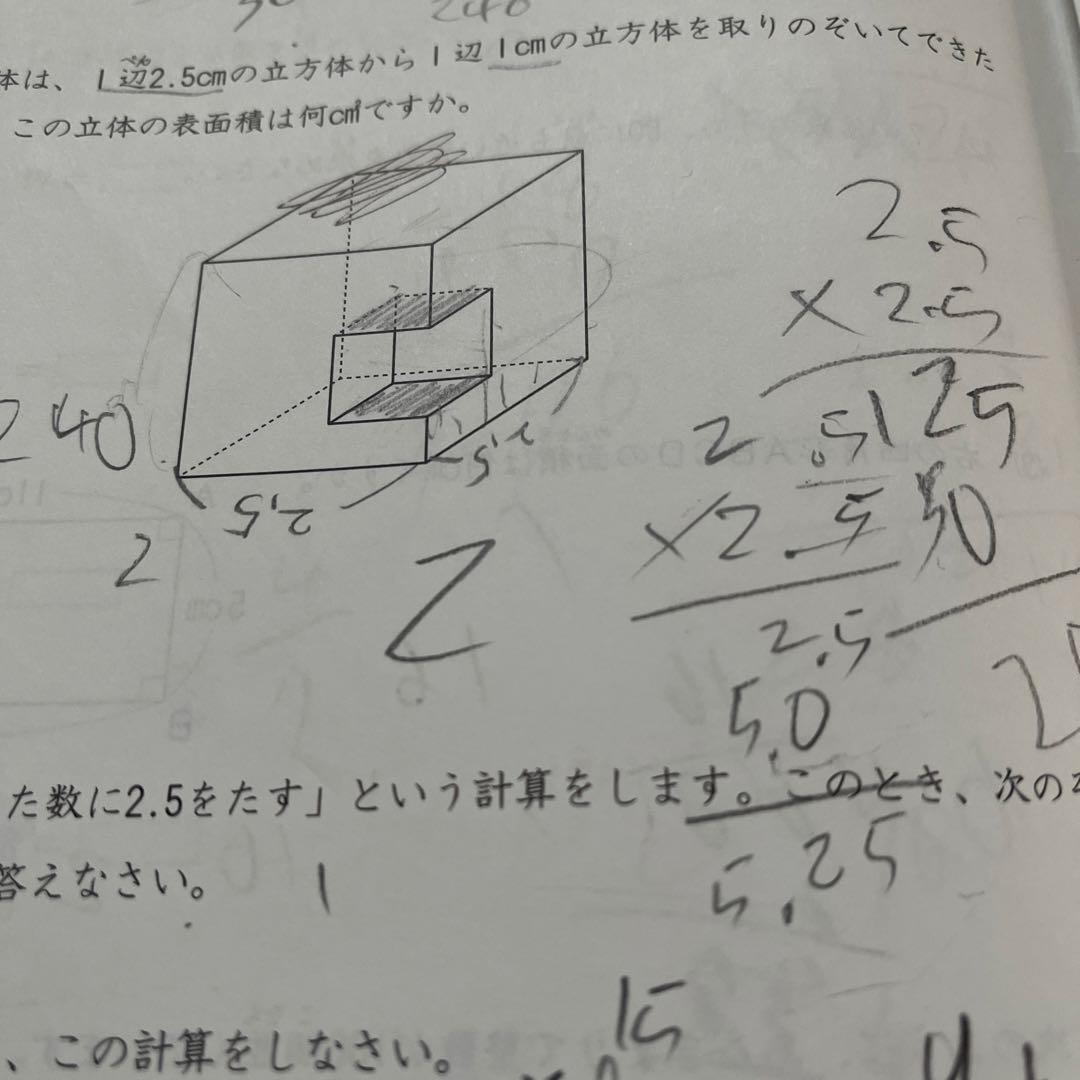 240
体は、1辺2.5cmの立方体から1辺1cmの立方体を取りのぞいてできた
この立体の表面積は何cm²ですか。
2.5
×2.5
125
50
240
2.5
2.5
2
2
2.5
×2.5
2.5
5.0
5.25
た数に2.5をたす」という計算をします。このとき、次の
答えなさい。
1
、この計算をしなさい。
15